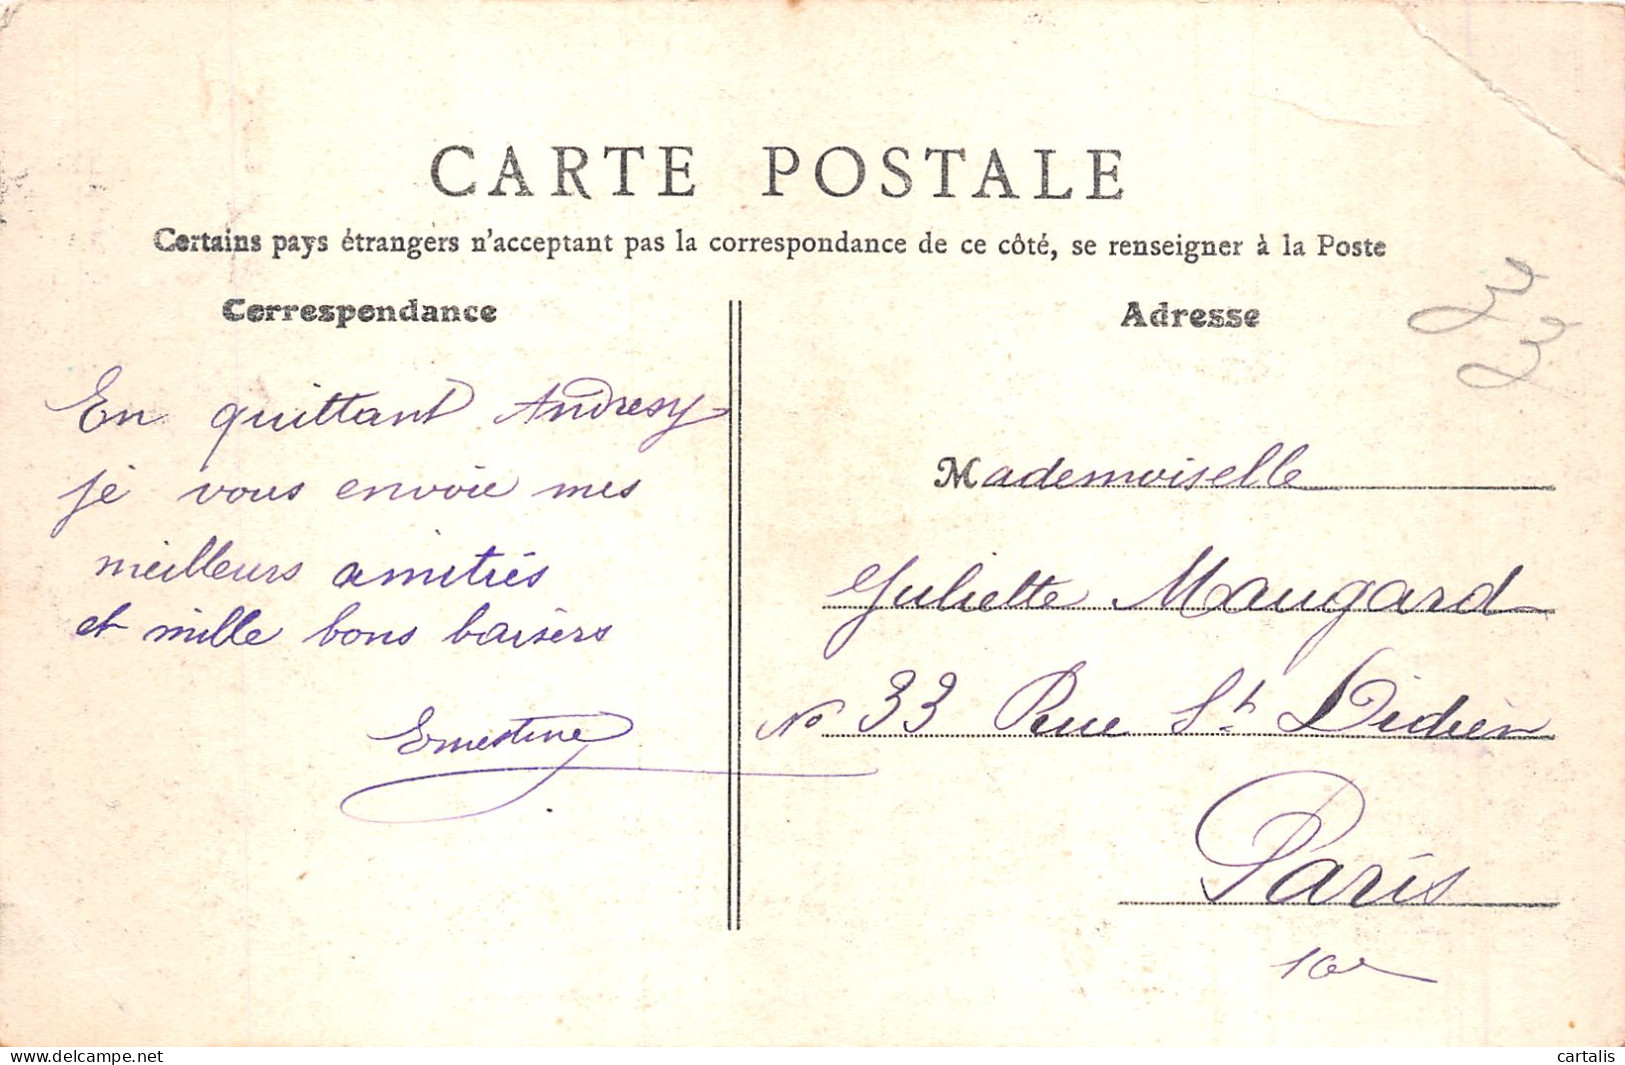 CARTE POSTALE
Certains pays étrangers n'acceptant pas la correspondance de ce côté, se renseigner à la Poste
Correspondance
En quittant Andresy
je vous envoie mes
meilleurs amitiés
et mille bons baisers
Ernestine
Adresse
Mademoiselle
Juliette Maugard
No 33 Rue St. Didier
Paris
www.delcampe.net
cartalis